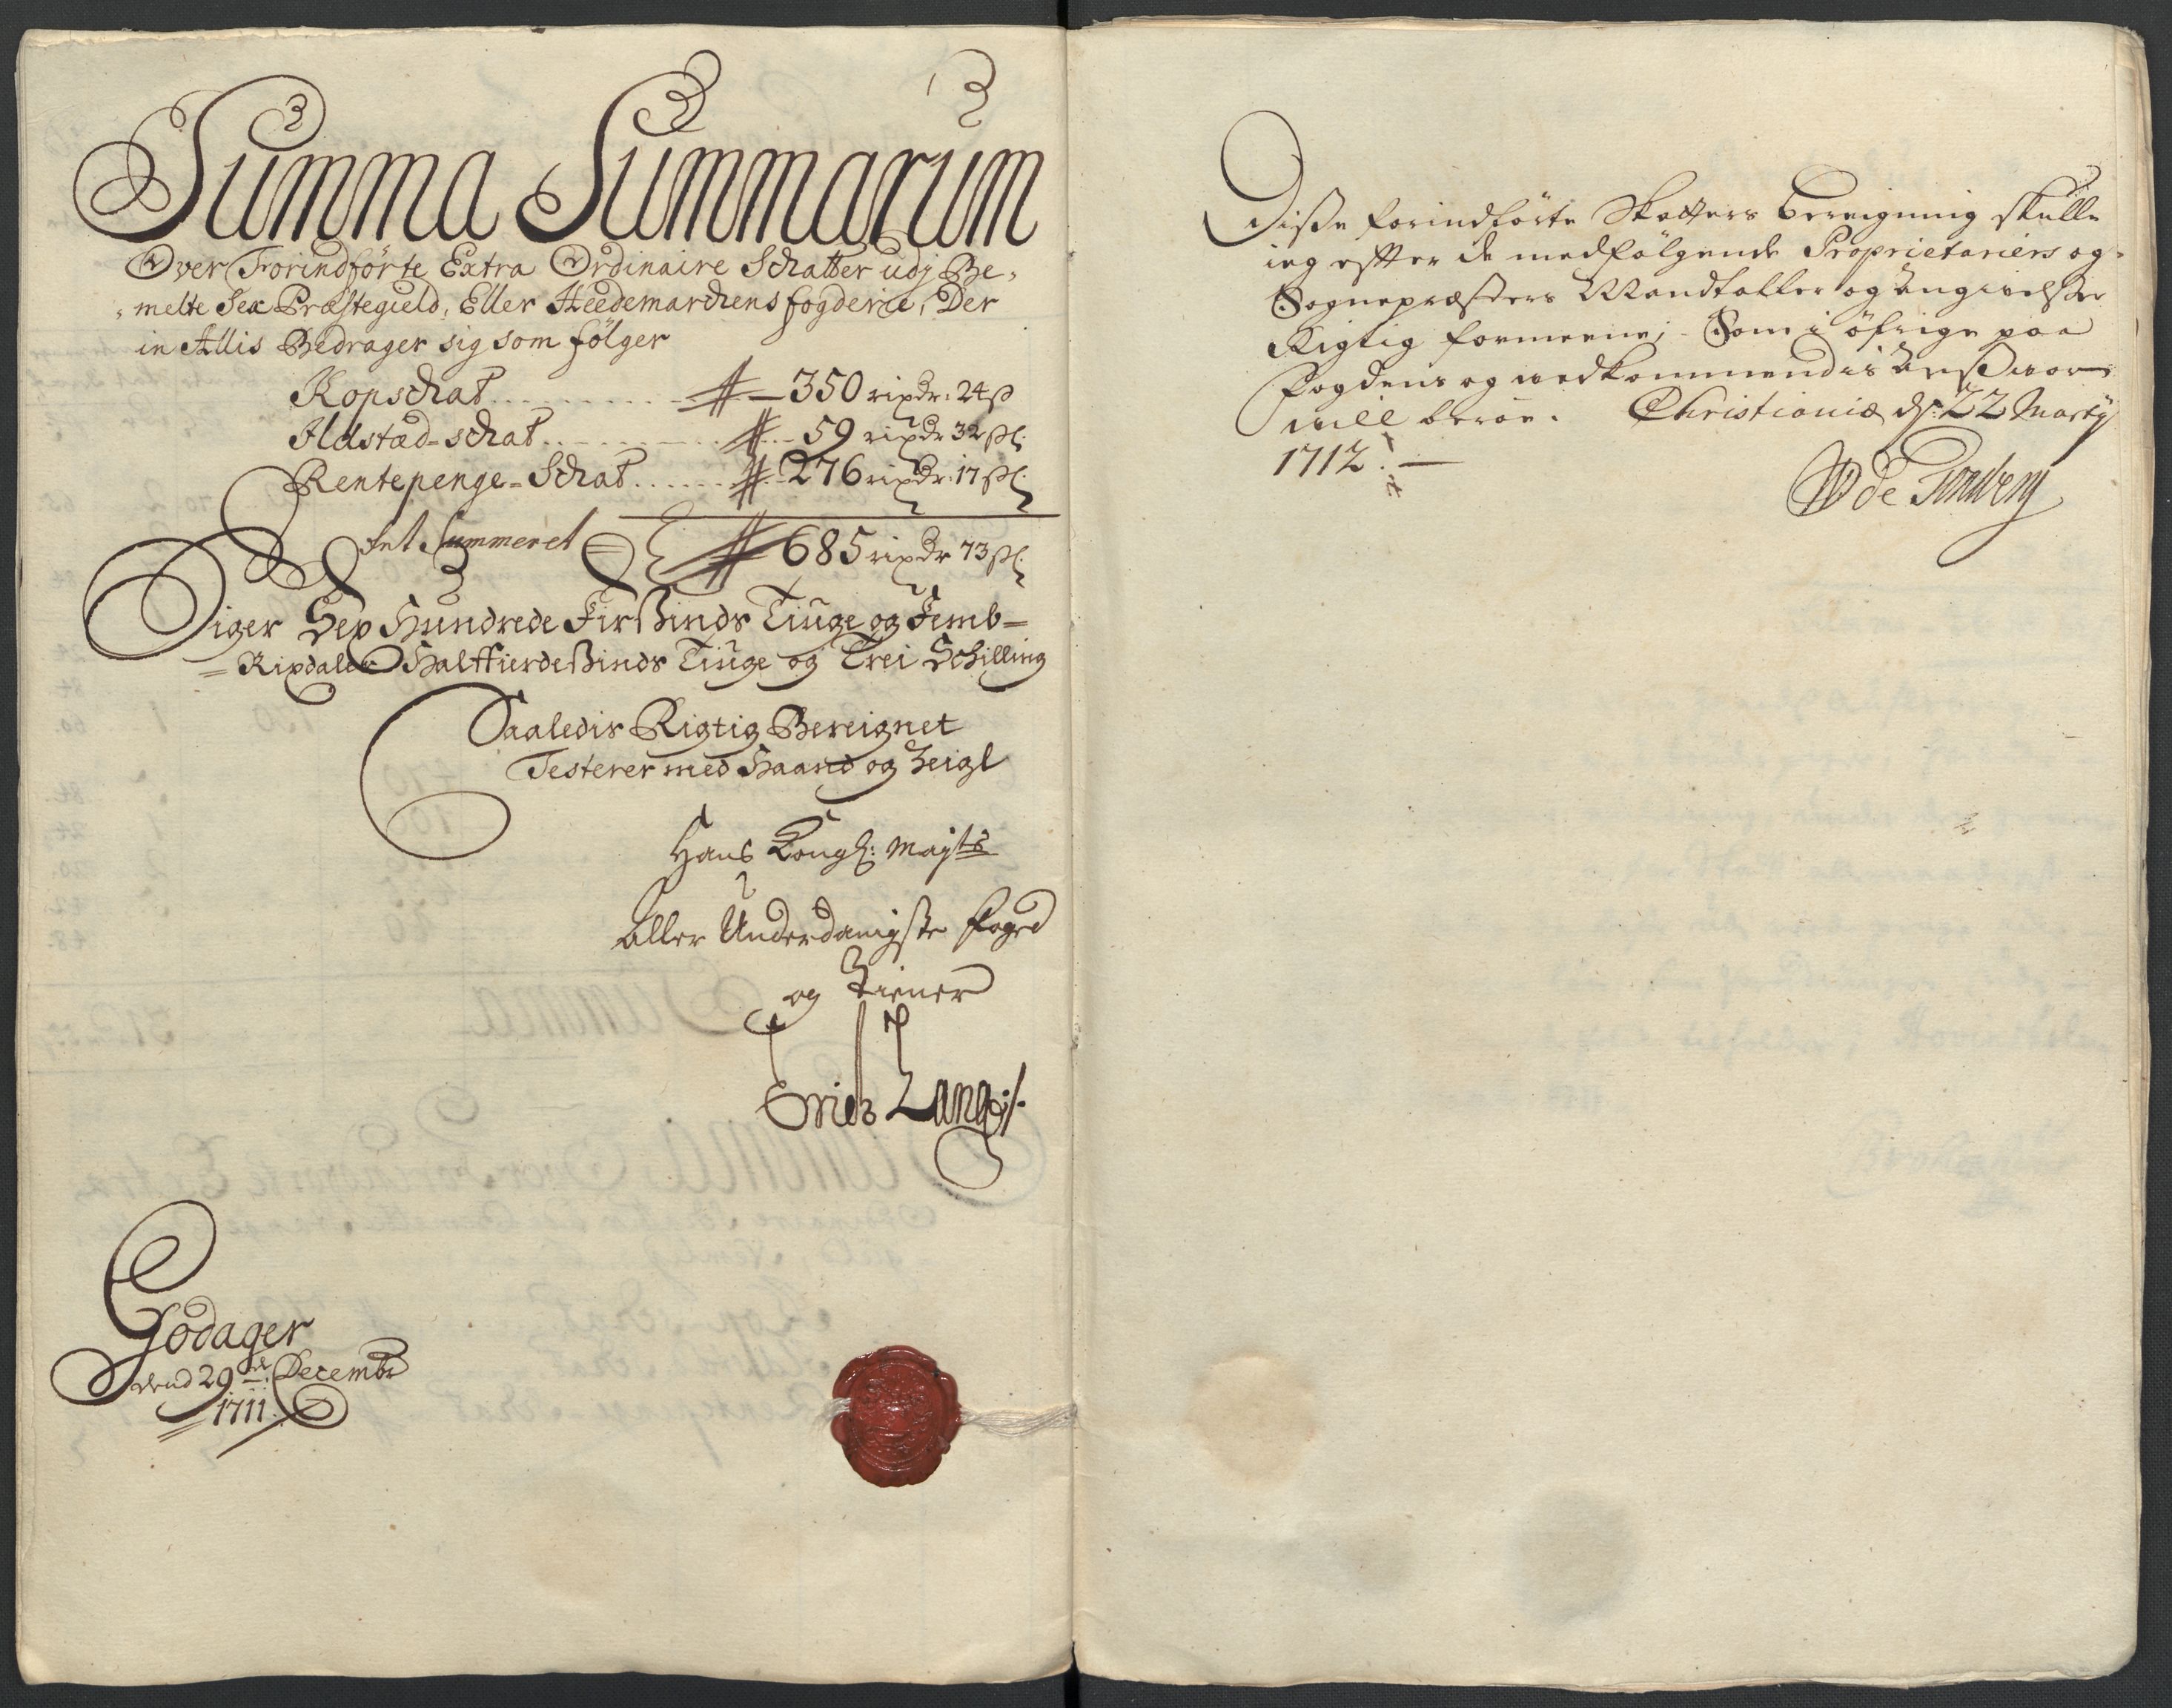 Summa Summarum
Over Forindførte Extra Ordinaire Schatter udj Be-
melte Sex Præstegield, Eller Heedemarchens fogderie, Der
in Allis Bedrager sig som følger
Kopschat 350 rixdr: 24 ß
Ildstæd-schat 59 rixdr 32 ßl:
Rentepenge-Schat 276 rixdr: 17 ßl:
Summeret 685 rixdr 73 ßl:
Siger Sex Hundrede Firßinds Tiuge og Femb-
Rixdaler Halffierdeßinds Tiuge og Trei Schilling
Saaledis Rigtig Bereignet
Testerer med Haand og Zeigl
Hans Kongl: Mayts
aller Underdanigste foged
og Tiener
Erich Lang
Godager
dend 29de Decembr
1711.
Disse forindførte Skatters bereigning skulle
ieg efter de medfølgende Proprietariers og
Sognepræsters Mandtaller og angivelser
Rigtig formeene; Som i øfrige paa
fogdens og vedkommendis ansvar
will beroe. Christiania d: 22 Martij
1712.